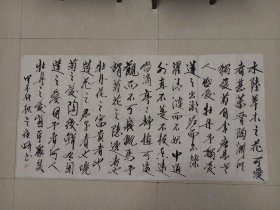 水陸草木之花可愛
者甚蕃晉陶淵明
獨愛菊自李唐來世
人甚愛牡丹予獨愛
蓮之出淤泥而不染
濯清漣而不妖中通
外直不蔓不枝香遠
益清亭亭静植可遠
觀而不可褻翫焉予
謂菊花之隱逸者也
牡丹花之富貴者也
蓮花之君子者也噫
菊之愛陶後鮮有聞
蓮之愛同予者何人
牡丹之愛宜乎衆矣
甲午秋